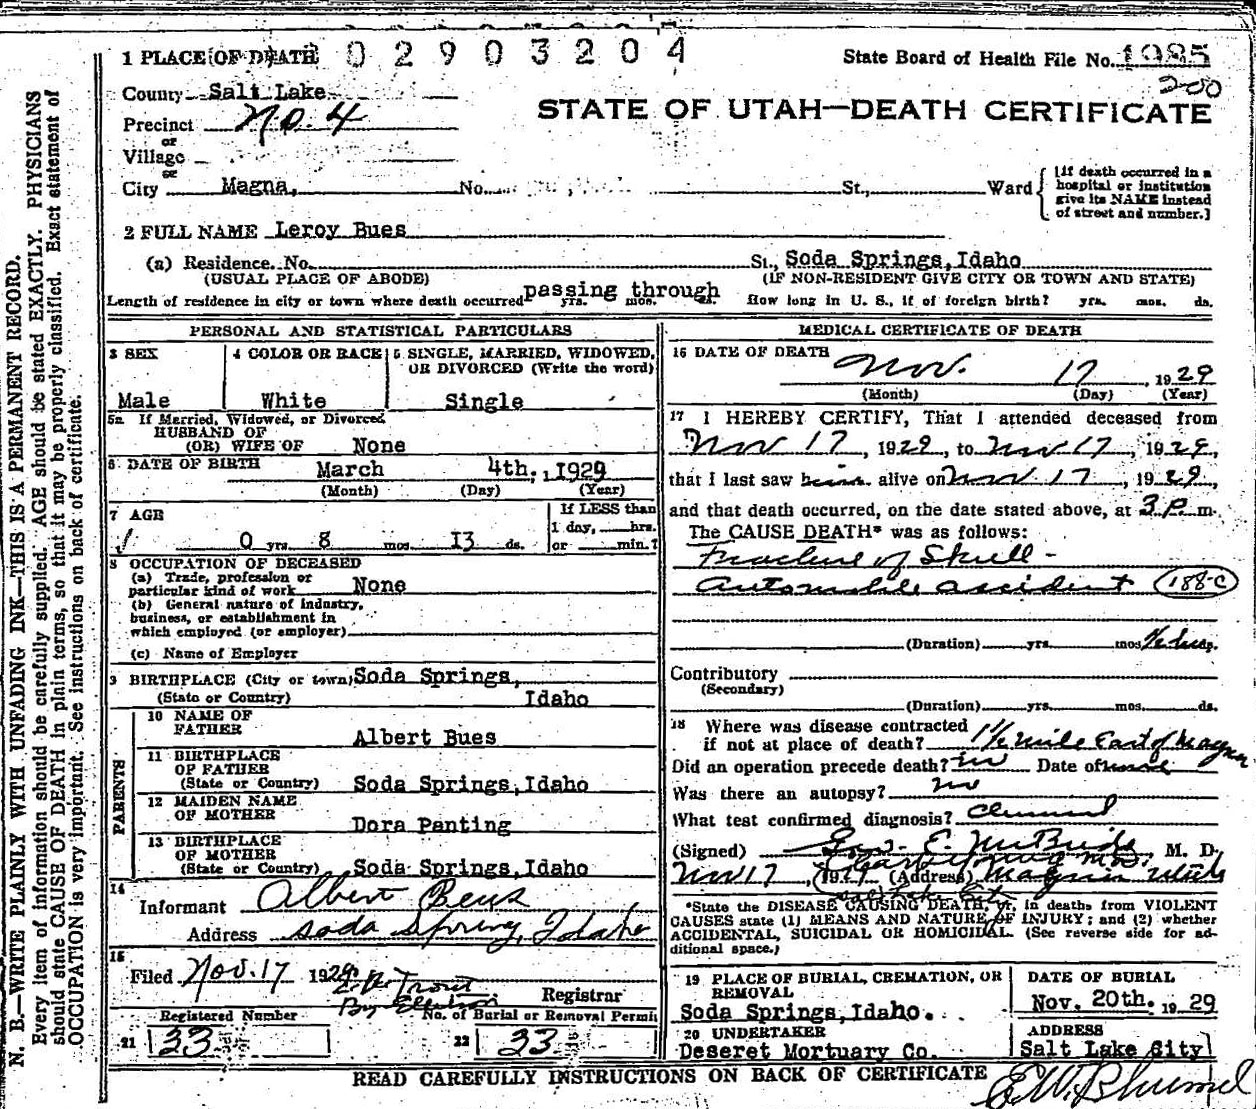 1 PLACE OF DEATH 02903204 State Board of Health File No. 1985
200
County Salt Lake
STATE OF UTAH—DEATH CERTIFICATE
Precinct No. 4
or
Village
or
City Magna, No. St., Ward
[If death occurred in a
hospital or institution
give its NAME instead
of street and number.]
2 FULL NAME Leroy Bues
(a) Residence. No. St., Soda Springs, Idaho
(USUAL PLACE OF ABODE) (IF NON-RESIDENT GIVE CITY OR TOWN AND STATE)
Length of residence in city or town where death occurred passing through yrs. mos. ds. How long in U. S., if of foreign birth? yrs. mos. ds.
PERSONAL AND STATISTICAL PARTICULARS
3 SEX 4 COLOR OR RACE 5 SINGLE, MARRIED, WIDOWED,
OR DIVORCED (Write the word)
Male White Single
5a If Married, Widowed, or Divorced
HUSBAND OF
(OR) WIFE OF None
6 DATE OF BIRTH March 4th., 1929
(Month) (Day) (Year)
7 AGE If LESS than
1 day, hrs.
0 yrs. 8 mos. 13 ds. or min.?
8 OCCUPATION OF DECEASED
(a) Trade, profession or
particular kind of work None
(b) General nature of industry,
business, or establishment in
which employed (or employer)
(c) Name of Employer
9 BIRTHPLACE (City or town) Soda Springs,
(State or Country) Idaho
PARENTS
10 NAME OF
FATHER Albert Bues
11 BIRTHPLACE
OF FATHER
(State or Country) Soda Springs, Idaho
12 MAIDEN NAME
OF MOTHER Dora Panting
13 BIRTHPLACE
OF MOTHER
(State or Country) Soda Springs, Idaho
14
Informant Albert Bues
Address Soda Spring, Idaho
15
Filed Nov. 17 1929 Trout
By Registrar
Registered Number No. of Burial or Removal Permit
21 33 22 33
MEDICAL CERTIFICATE OF DEATH
16 DATE OF DEATH Nov. 17, 1929
(Month) (Day) (Year)
17 I HEREBY CERTIFY, That I attended deceased from
Nov 17, 1929, to Nov 17, 1929,
that I last saw him alive on Nov 17, 1929,
and that death occurred, on the date stated above, at 3 P m.
The CAUSE DEATH* was as follows:
Fracture of Skull -
Automobile accident 188-C
(Duration) yrs. mos. ds.
Contributory
(Secondary)
(Duration) yrs. mos. ds.
18 Where was disease contracted
if not at place of death? 1½ mile East of Magna
Did an operation precede death? no Date of none
Was there an autopsy? no
What test confirmed diagnosis? Clinical
(Signed) E. McBride M. D.
Nov 17, 1929 (Address) Magna Utah
Salt Lake City
*State the DISEASE CAUSING DEATH, or, in deaths from VIOLENT
CAUSES state (1) MEANS AND NATURE OF INJURY; and (2) whether
ACCIDENTAL, SUICIDAL OR HOMICIDAL. (See reverse side for ad-
ditional space.)
19 PLACE OF BURIAL, CREMATION, OR
REMOVAL
Soda Springs, Idaho.
DATE OF BURIAL
Nov. 20th. 19 29
20 UNDERTAKER
Deseret Mortuary Co.
ADDRESS
Salt Lake City
READ CAREFULLY INSTRUCTIONS ON BACK OF CERTIFICATE
N. B.—WRITE PLAINLY WITH UNFADING INK—THIS IS A PERMANENT RECORD.
Every item of information should be carefully supplied. AGE should be stated EXACTLY. PHYSICIANS
should state CAUSE OF DEATH in plain terms, so that it may be properly classified. Exact statement of
OCCUPATION is very important. See instructions on back of certificate.